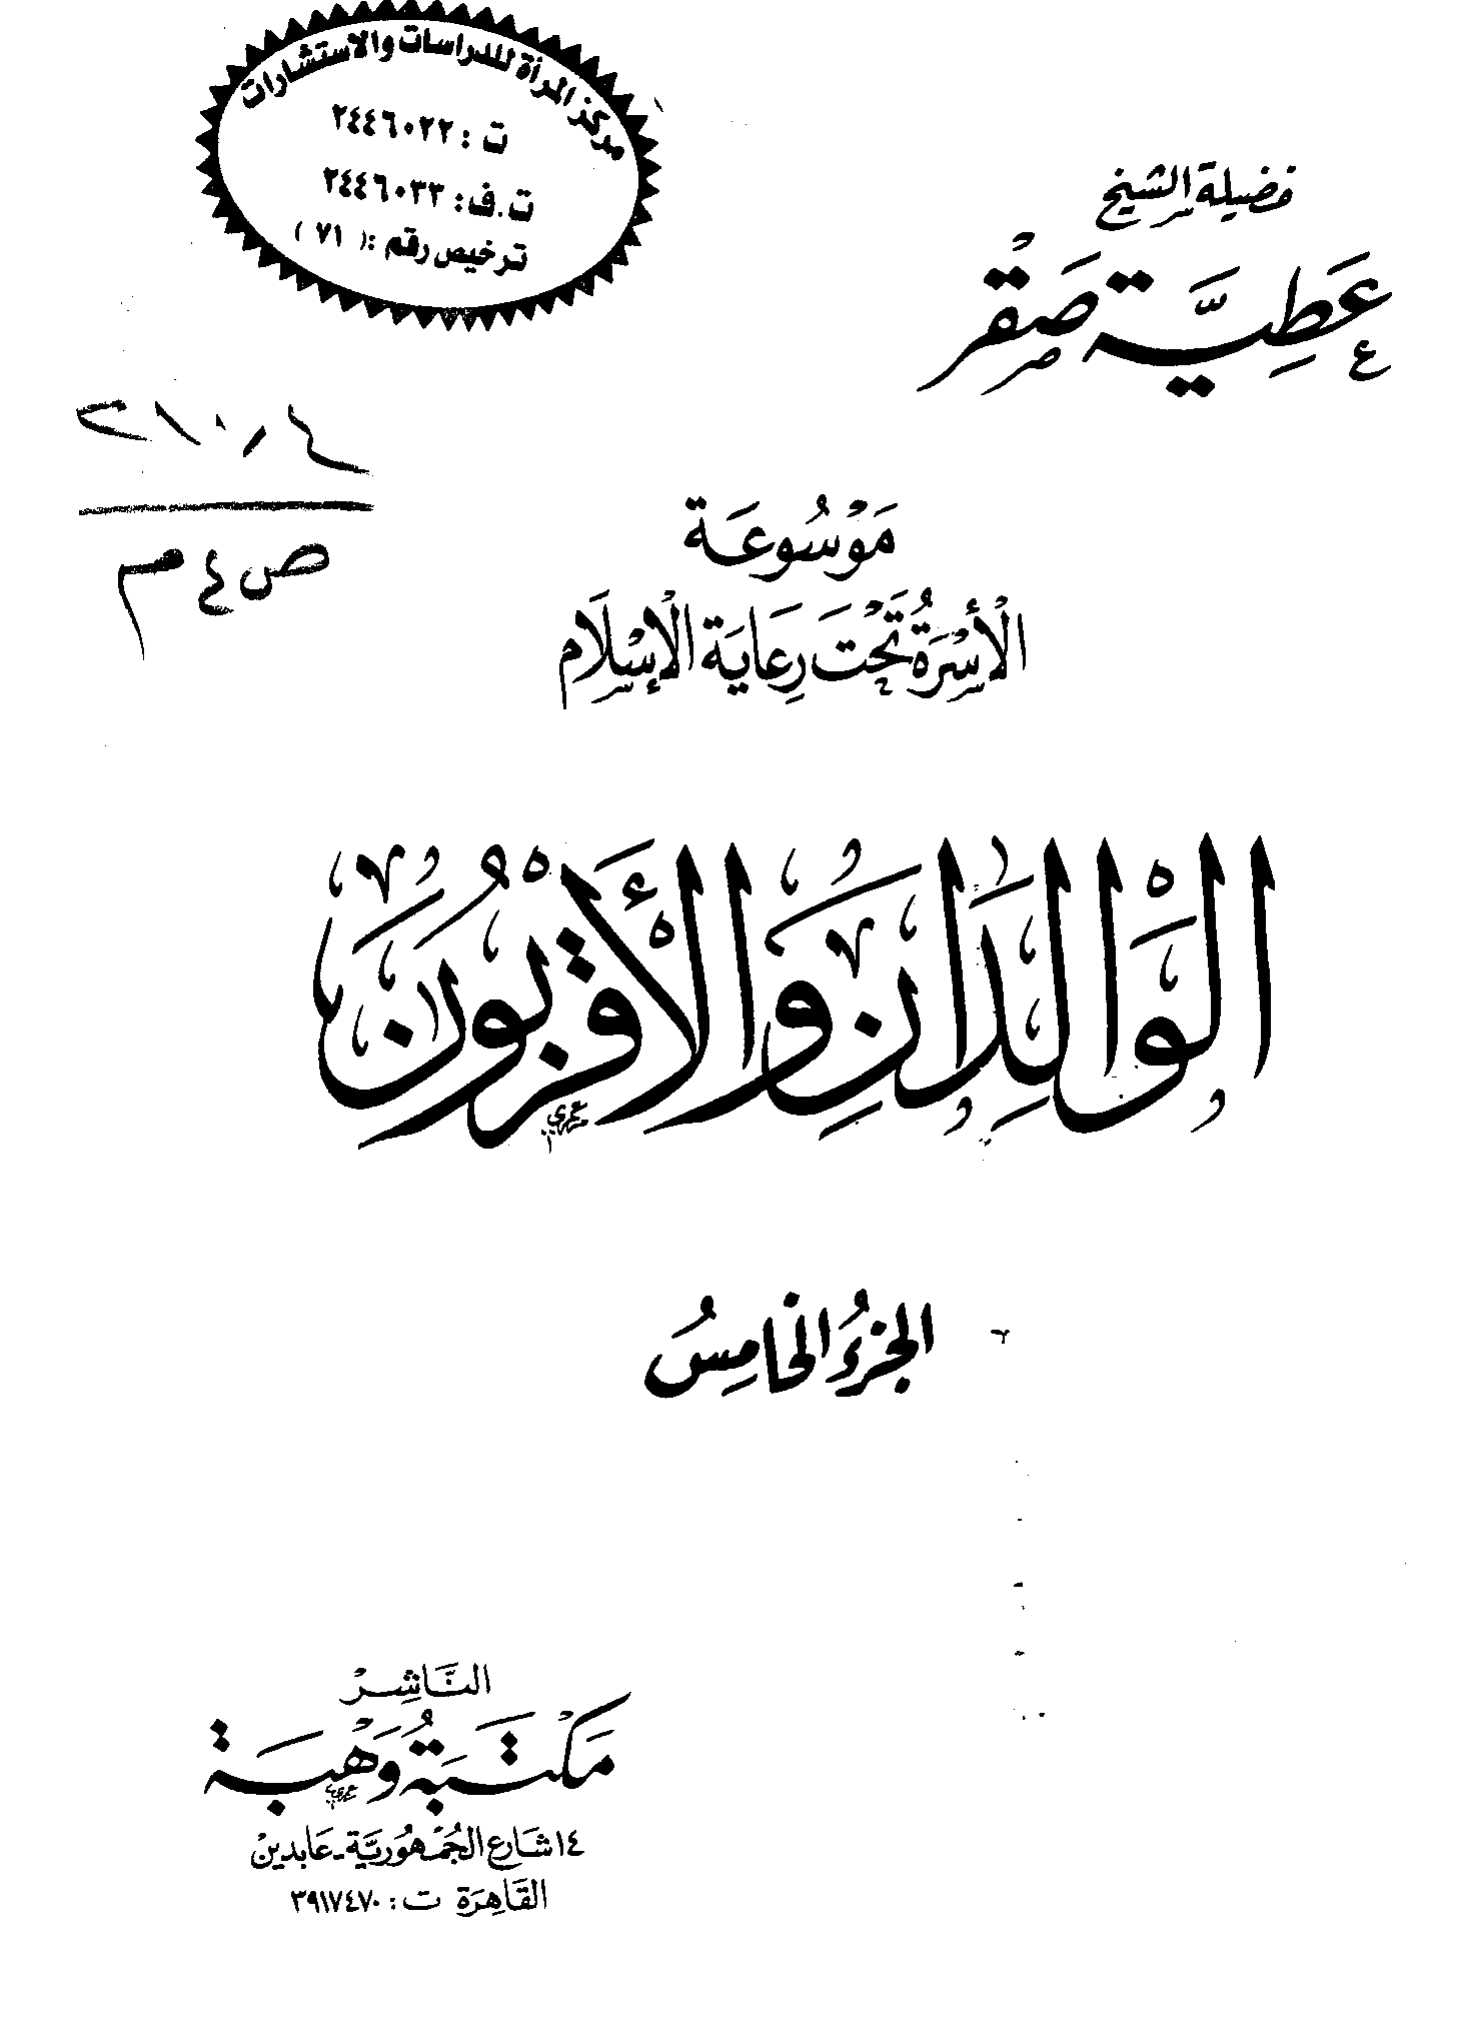 مركز المرأة للدراسات والاستشارات
ت : ٢٤٤٦٠٢٢
ت.ف: ٢٤٤٦٠٣٣
ترخيص رقم :( ٧١ )
فضيلة الشيخ
عَطِيَّة صَقْر
٢١٠٫٤
ص ٤ م
مَوْسُوعَة
الْأُسْرَةُ تَحْتَ رِعَايَةِ الْإِسْلَام
الْوَالِدَانِ وَالْأَقْرَبُونَ
الجزءُ الخامِسُ
النَّاشِرْ
مَكْتَبَةُ وَهْبَة
١٤ شَارِع الجُمْهُورِيَّة - عَابِدِين
القَاهِرَة ت : ٣٩١٧٤٧٠